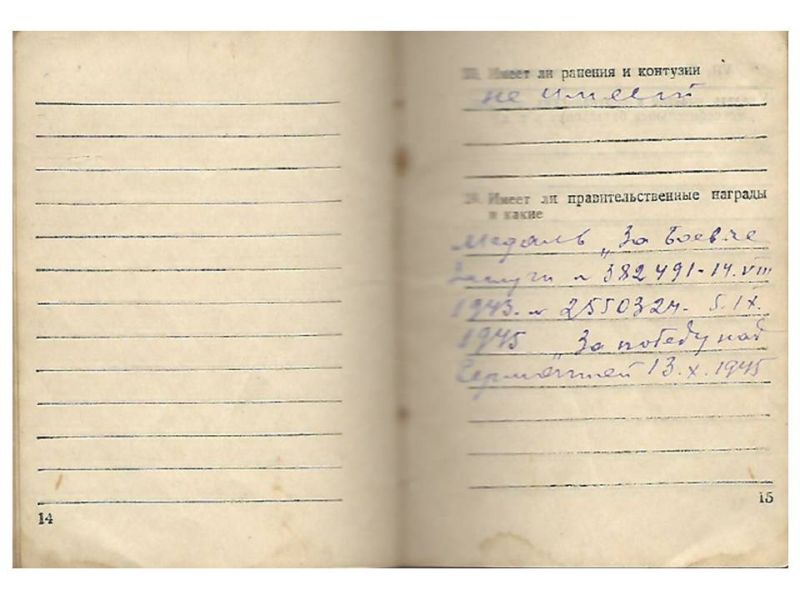 14
Имеет ли ранения и контузии
не имеет
Имеет ли правительственные награды
и какие
Медаль „За боевые
Заслуги № 382491-14.VIII
1943. № 2550324. 5.IX.
1945 „За победу над
Германией 13.X.1945
15